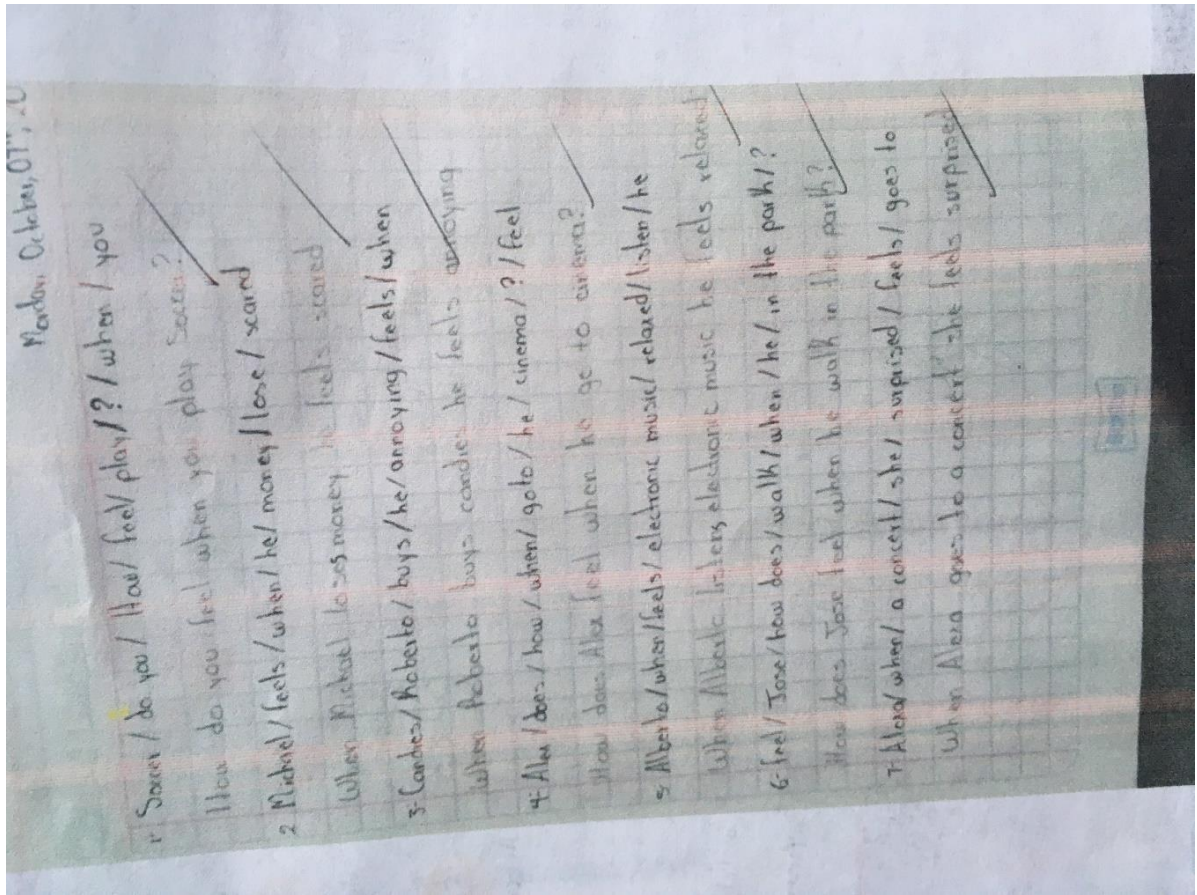 Monday October, 07th, 20
1- Soccer / do you / How / feel / play / ? / when / you
How do you feel when you play soccer?
2 Michael / feels / when / he / money / lose / scared
When Michael loses money he feels scared
3- Candies / Roberto / buys / he / annoying / feels / when
When Roberto buys candies he feels annoying
4- Alex / does / how / when / go to / he / cinema / ? / feel
How does Alex feel when he go to cinema?
5 Alberto / when / feels / electronic music / relaxed / listen / he
When Alberto listens electronic music he feels relaxed
6- feel / Jose / how does / walk / when / he / in the park / ?
How does Jose feel when he walk in the park?
7- Alexa / when / a concert / she / surprised / feels / goes to
When Alexa goes to a concert she feels surprised